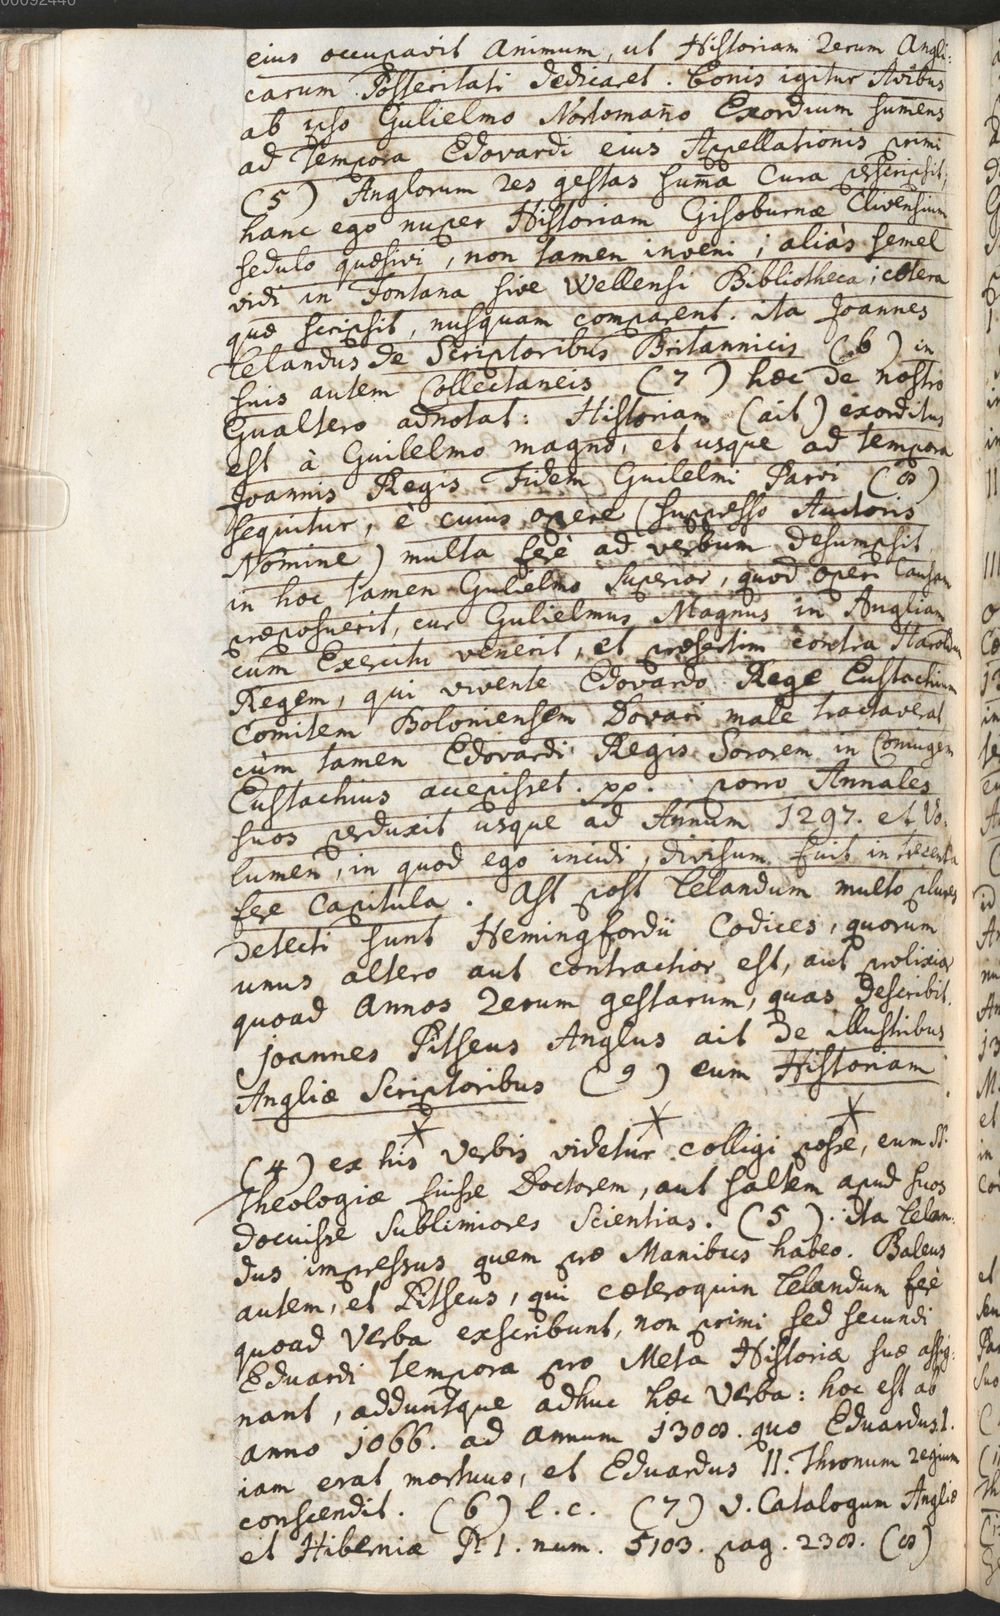 00092440
eius occupavit Animum, ut Historiam Rerum Angli-
carum Posteritati dedicaret. bonis igitur Avibus
ab ipso Gulielmo Nortomaño Exordium sumens
ad Tempora Edovardi eius Appellationis primi
(5) Anglorum res gestas sum̃a Cura perscripsit,
hanc ego nuper Historiam Gisoburnæ Clivensium
sedulo quæsivi, non tamen inveni; aliàs semel
vidi in Fontana sive Wellensi Bibliotheca; cætera
quæ scripsit, nusquam comparent. ita Joannes
Lelandus de Scriptoribus Britannicis (6) in
suis autem Collectaneis (7) hæc de nostro
Gualtero adnotat: Historiam (ait) exorditus
est à Guilelmo magno, et usque ad tempora
Joannis Regis Fidem Guilelmi Parvi (8)
sequitur, è cuius opere (suppresso Auctoris
Nomine) multa ferè ad verbum desumpsit
in hoc tamen Gulielmo superior, quod operi Causam
præposuerit, cur Gulielmus Magnus in Angliam
cum Exercitu venerit, et præsertim contra Haroldum
Regem, qui vivente Edovardo Rege Eustachium
Comitem Boloniensem Dovari male tractaverat
cùm tamen Edovardi Regis Sororem in Coniugem
Eustachius accepisset. pp. porro Annales
suos perduxit usque ad Annum 1297. et Vo-
lumen, in quod ego incidi, divisum fuit in trecenta
fere Capitula. Ast post Lelandum multo plures
detecti sunt Hemingfordii Codices, quorum
unus altero aut contractior est, aut prolixior
quoad Annos rerum gestarum, quas describit.
Joannes Pitseus Anglus ait de illustribus
Angliæ Scriptoribus (9) eum Historiam
(4) ex his verbis videtur colligi posse, eum SS.
Theologiæ fuisse Doctorem, aut saltem apud suos
docuisse sublimiores Scientias. (5) ita Lelan-
dus impressus quem præ Manibus habeo. Baleus
autem, et Pitseus, qui cæteroquin Lelandum ferè
quoad verba exscribunt, non primi sed secundi
Eduardi tempora pro Meta Historiæ suæ assig-
nant, adduntque adhuc hæc verba: hoc est ab
anno 1066. ad annum 1308. quo Eduardus I.
iam erat mortuus, et Eduardus II. Thronum regium
conscendit. (6) l.c. (7) v. Catalogum Angliæ
et Hiberniæ P. I. num. 5103. pag. 238. (8)